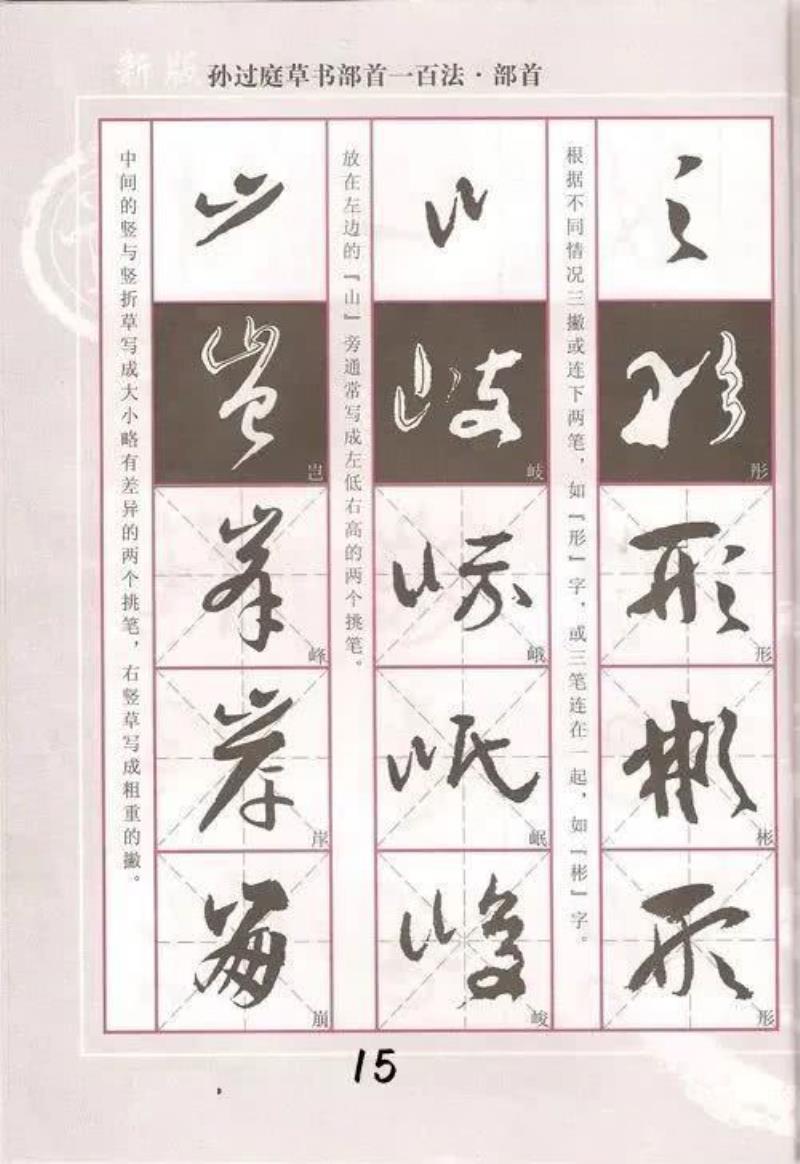 新版 孙过庭草书部首一百法·部首
彤
形
彬
形
根据不同情况三撇或连下两笔，如『形』字，或三笔连在一起，如『彬』字。
岐
峨
岷
峻
放在左边的『山』旁通常写成左低右高的两个挑笔。
岂
峰
岸
崩
中间的竖与竖折草写成大小略有差异的两个挑笔，右竖草写成粗重的撇。
15